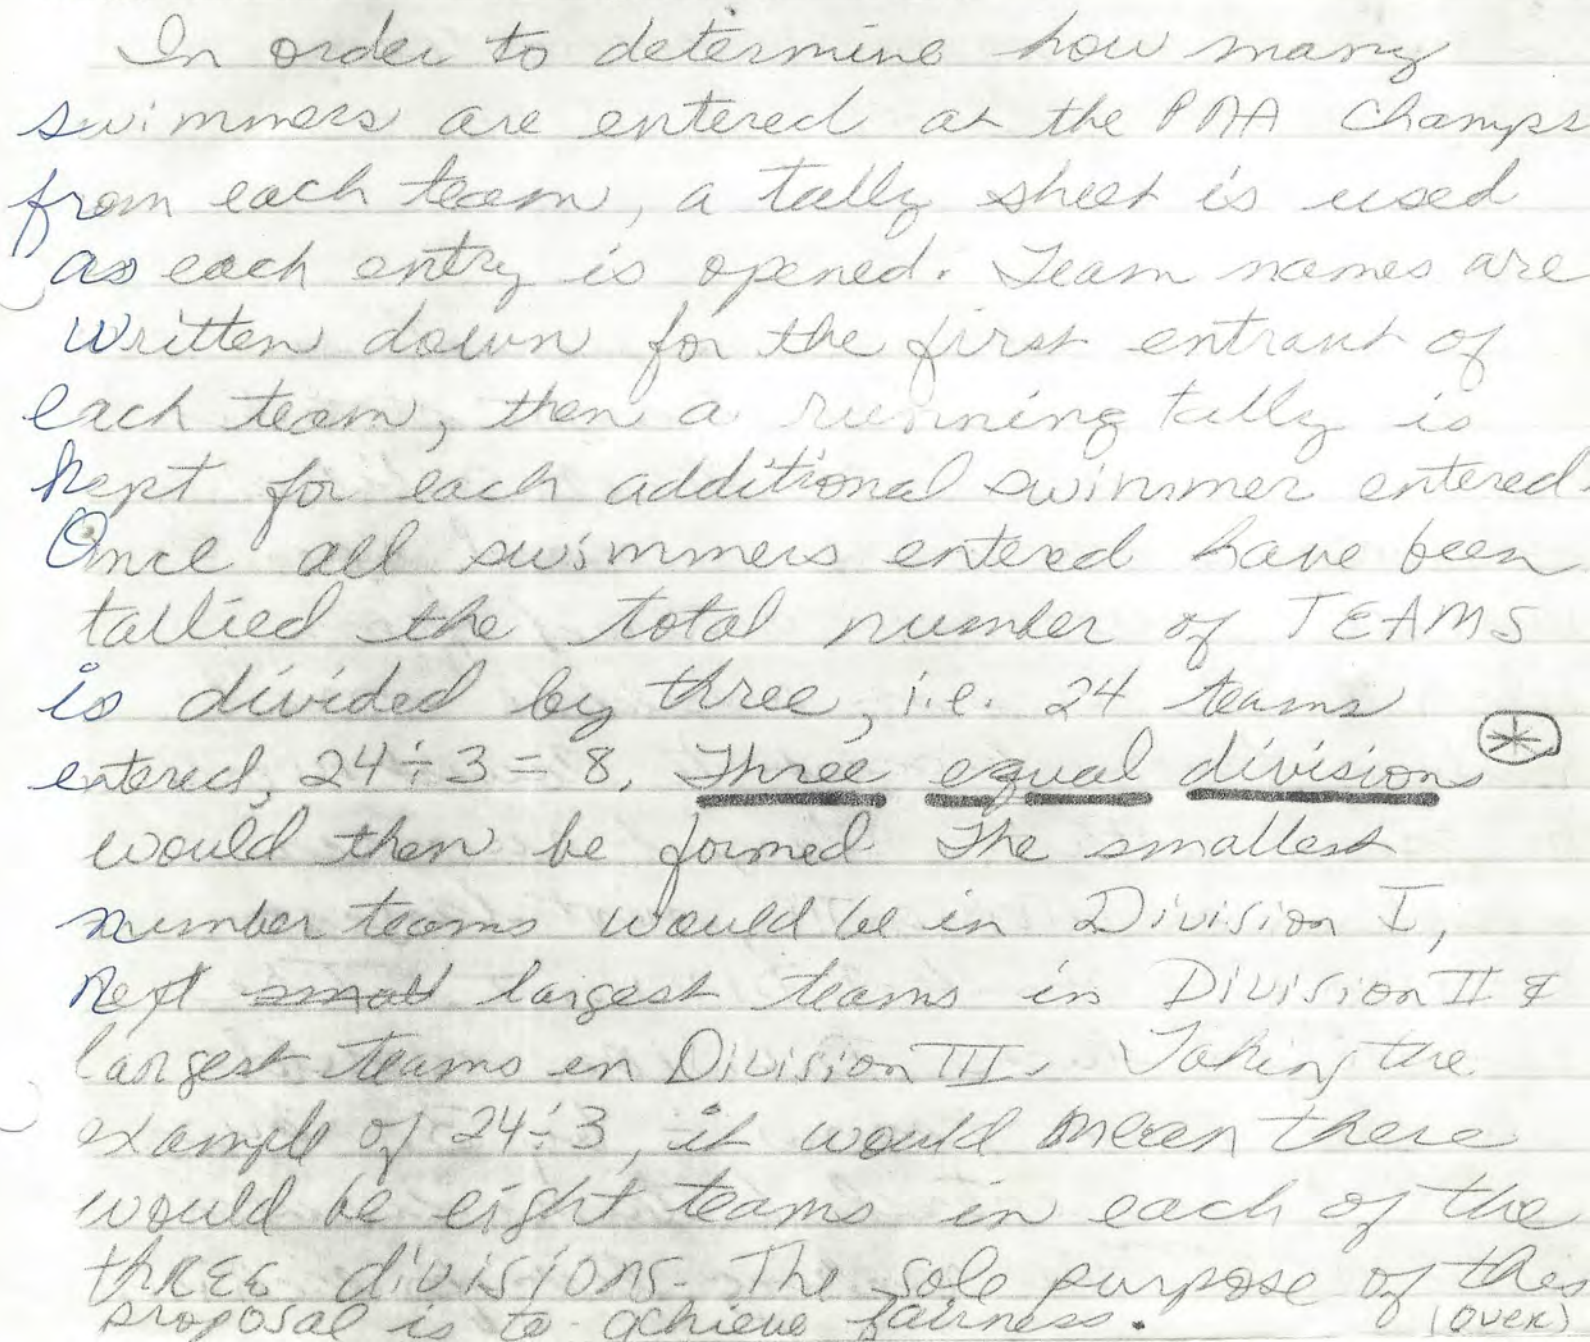 In order to determine how many
swimmers are entered at the PMA Champs
from each team, a tally sheet is used
as each entry is opened. Team names are
written down for the first entrant of
each team, then a running tally is
kept for each additional swimmer entered.
Once all swimmers entered have been
tallied the total number of TEAMS
is divided by three, i.e. 24 teams
entered, 24÷3=8. Three equal divisions *
would then be formed The smallest
number teams would be in Division I,
Next small largest teams in Division II &
largest teams in Division III. Taking the
example of 24÷3, it would mean there
would be eight teams in each of the
thREE divisions. The sole purpose of this
proposal is to achieve fairness. (OVER)